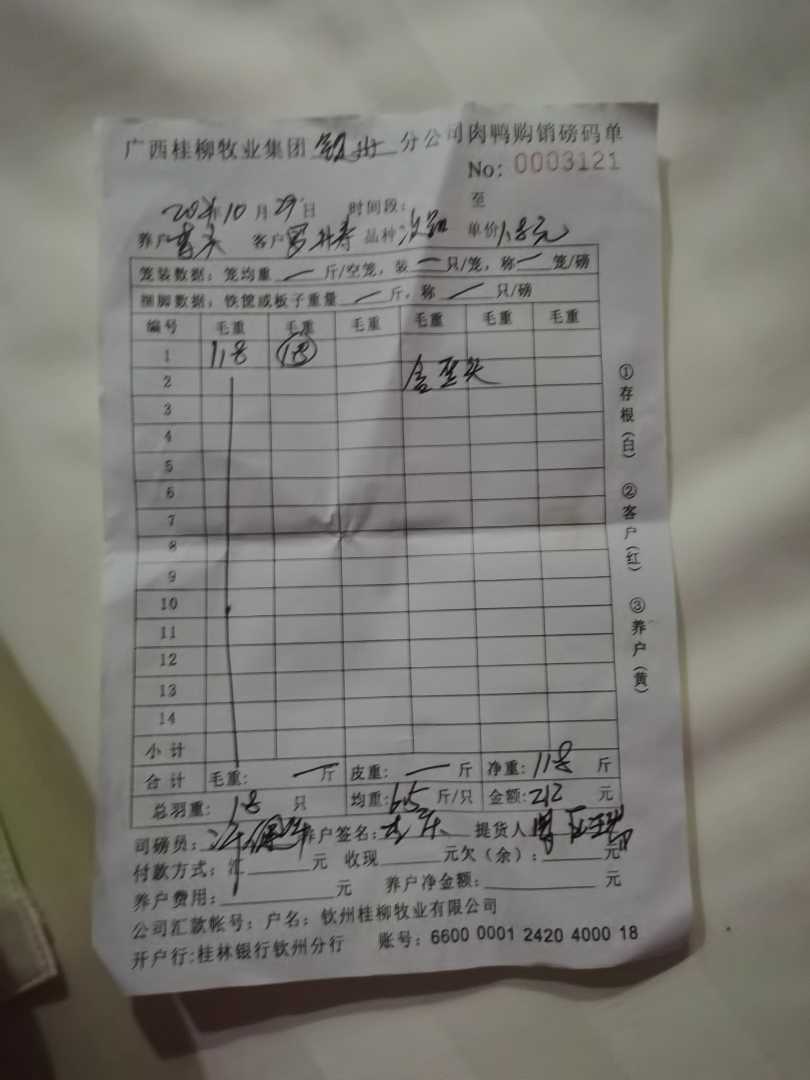 广西桂柳牧业集团 钦州 分公司肉鸭购销磅码单
No: 0003121
年10月29日 时间段: 至
养户 客户 品种 次鸭 单价 1.8元
笼装数据: 笼均重 一 斤/空笼, 装 一 只/笼, 称 一 笼/磅
捆脚数据, 铁筐或板子重量 一 斤, 称 一 只/磅
编号 毛重 毛重 毛重 毛重 毛重 毛重
1 118 18
2
3
4
5
6
7
8
9
10
11
12
13
14
小计
合计 毛重: 一 斤 皮重: 一 斤 净重: 118 斤
总羽重: 18 只 均重: 6.5 斤/只 金额: 212 元
司磅员: 养户签名: 提货人
付款方式: 汇 元 收现 元欠(余): 元
养户费用: 元 养户净金额: 元
公司汇款帐号: 户名: 钦州桂柳牧业有限公司
开户行:桂林银行钦州分行 账号: 6600 0001 2420 4000 18
①存根(白) ②客户(红) ③养户(黄)